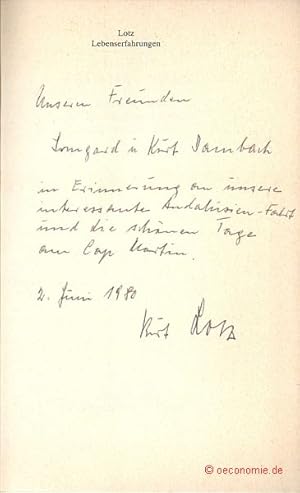 Lotz
Lebenserfahrungen
Unseren Freunden
Irmgard u Kurt Dambach
in Erinnerung an unsere
interessante Andalusien-Fahrt
und die schönen Tage
am Cap Martin.
2. Juni 1980
Kurt Lotz
© oeconomie.de